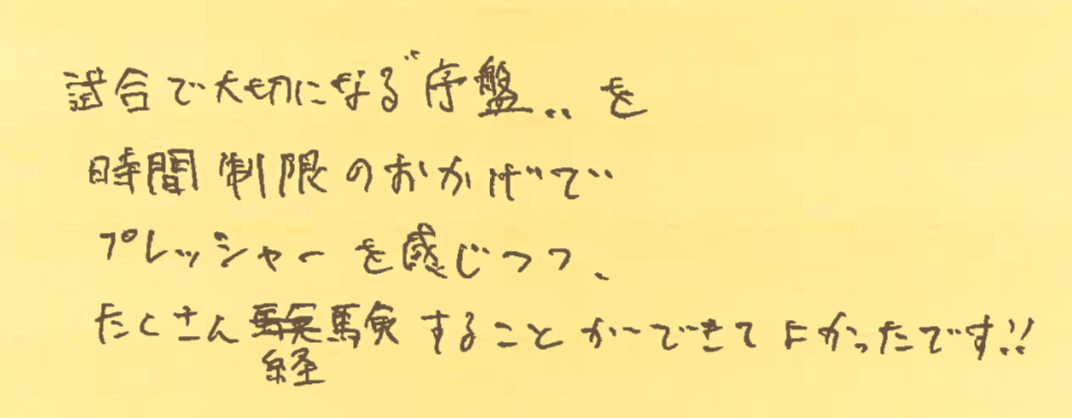 試合で大切になる"序盤"を
時間制限のおかげで
プレッシャーを感じつつ、
たくさん経験することができてよかったです!!